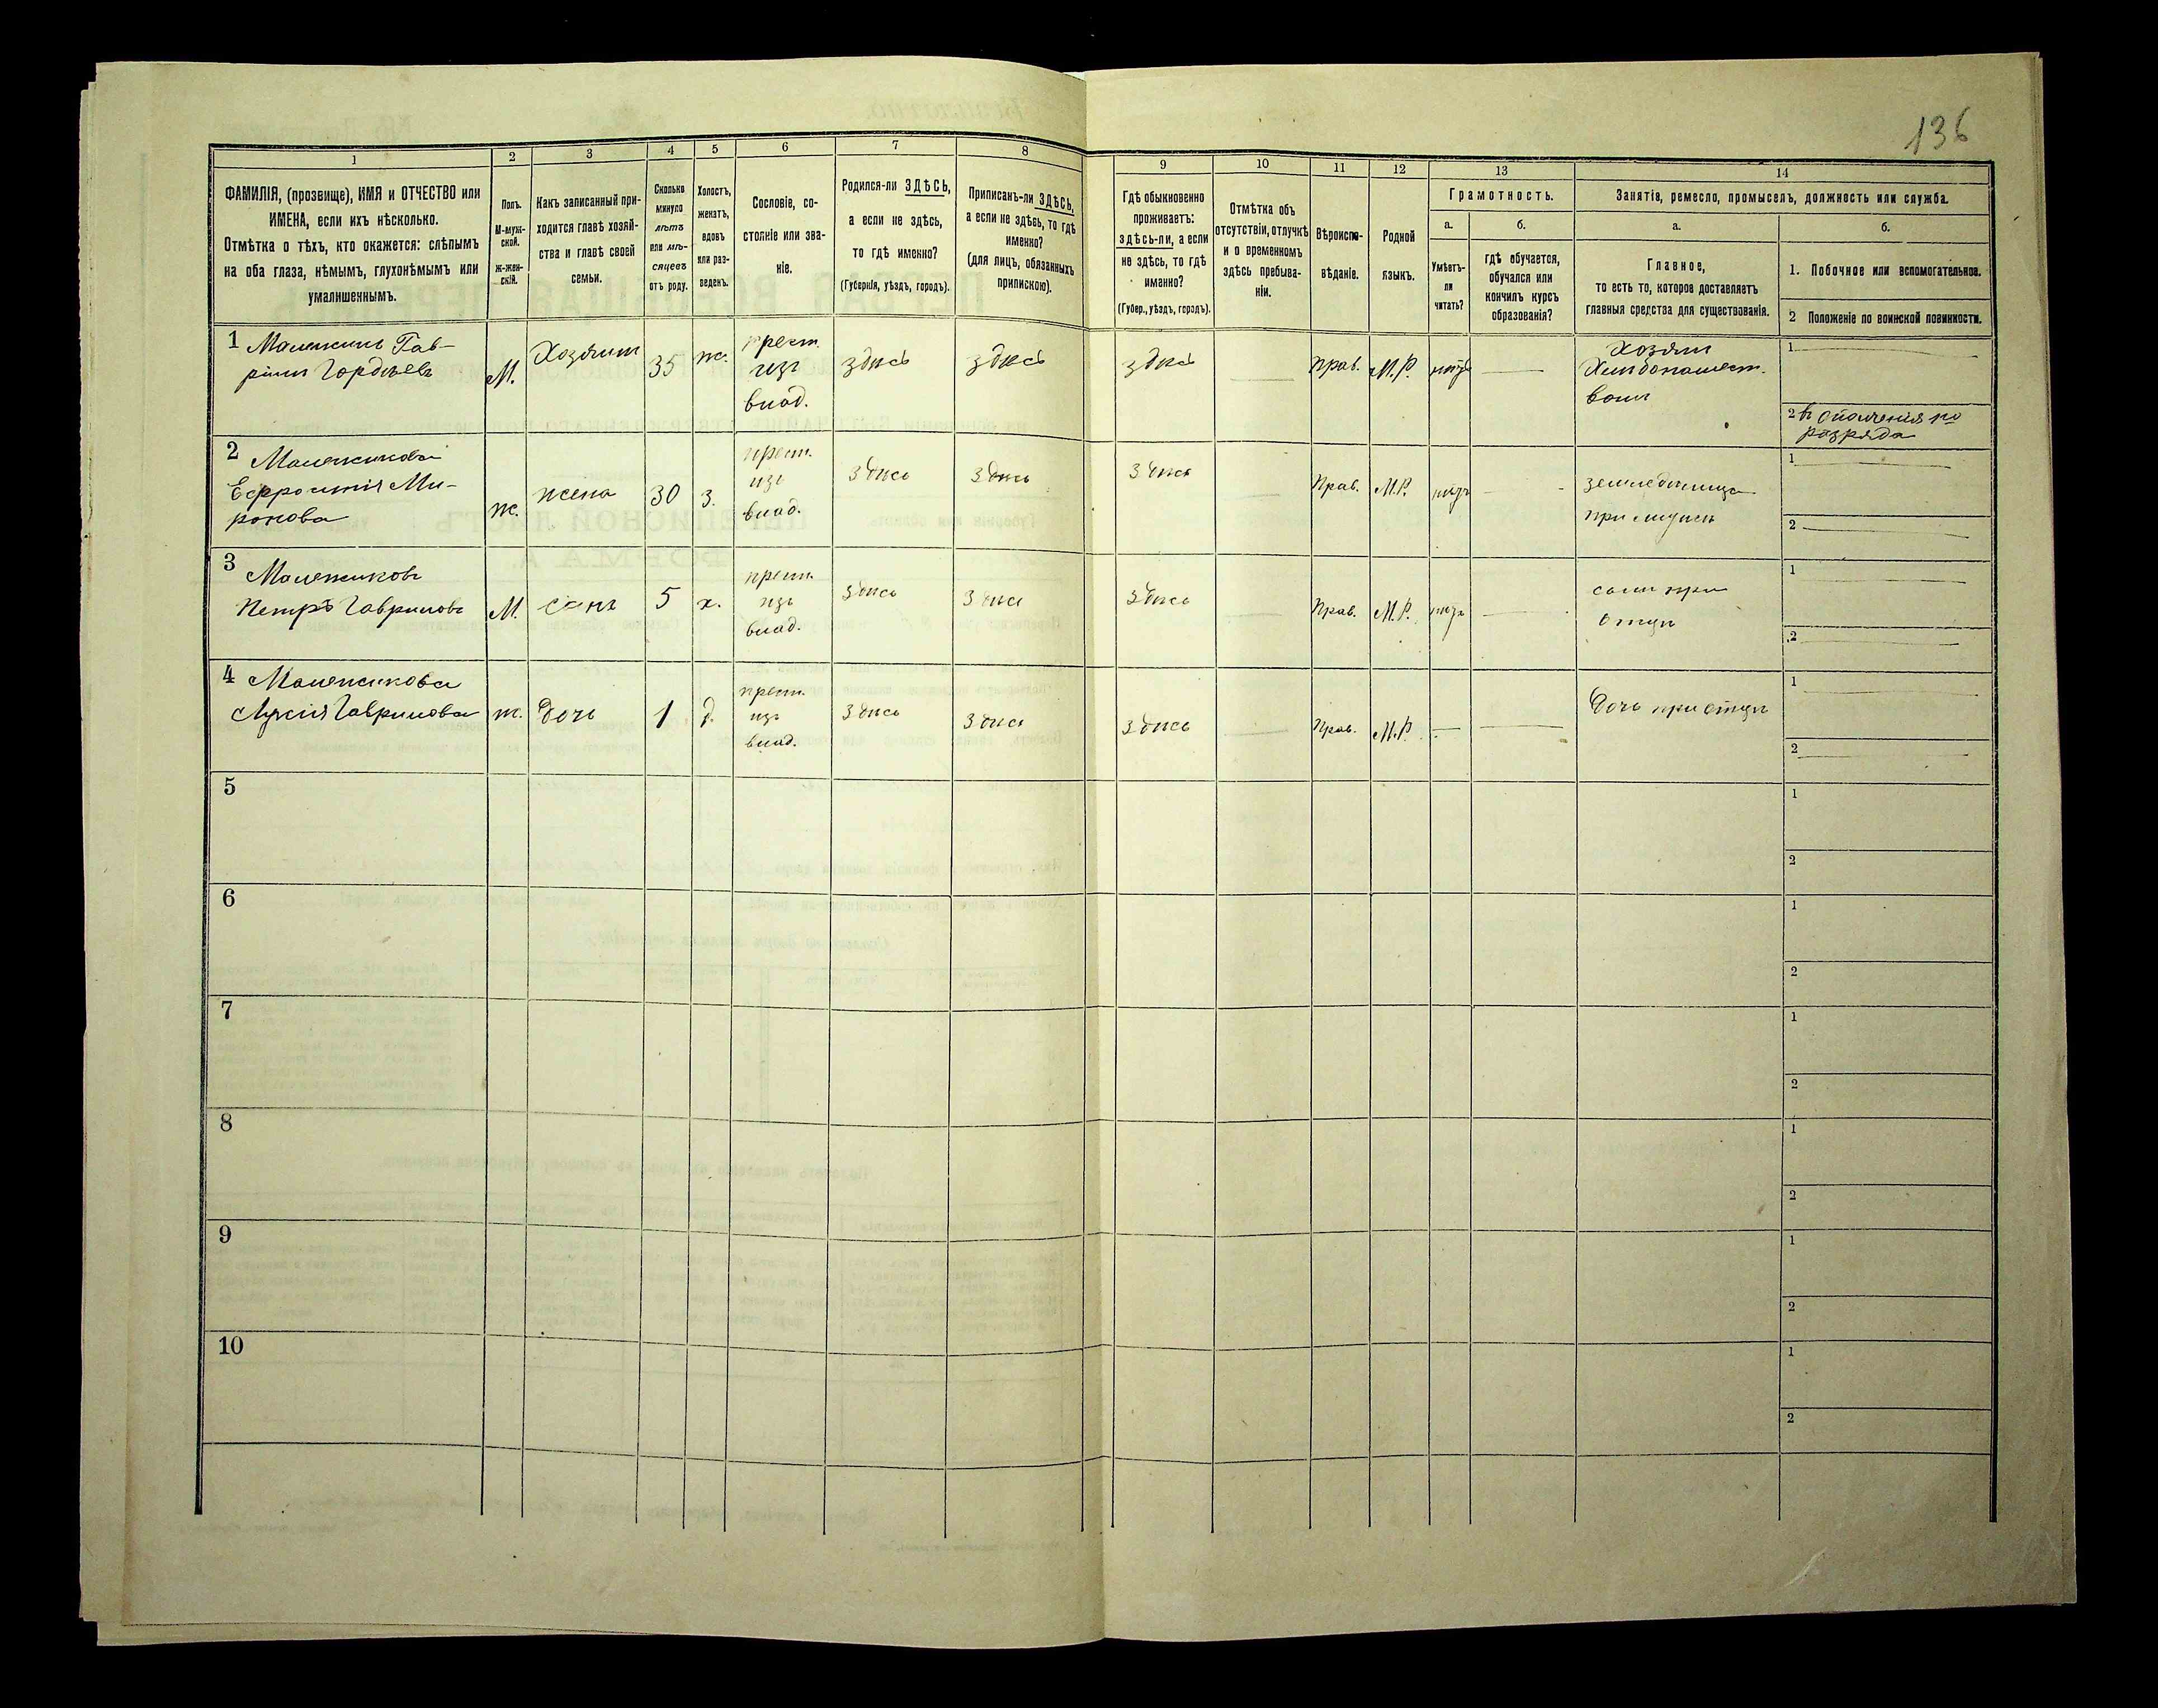 136
1 2 3 4 5 6 7 8 9 10 11 12 13 14
ФАМИЛІЯ, (прозвище), ИМЯ и ОТЧЕСТВО или
ИМЕНА, если ихъ нѣсколько.
Отмѣтка о тѣхъ, кто окажется: слѣпымъ
на оба глаза, нѣмымъ, глухонѣмымъ или
умалишеннымъ.
Полъ.
М-муж-
ской.
Ж-жен-
скій.
Какъ записанный при-
ходится главѣ хозяй-
ства и главѣ своей
семьи.
Сколько
минуло
лѣтъ
или мѣ-
сяцевъ
отъ роду.
Холостъ,
женатъ,
вдовъ
или раз-
веденъ.
Сословіе, со-
стояніе или зва-
ніе.
Родился-ли ЗДѢСЬ,
а если не здѣсь,
то гдѣ именно?
(Губернія, уѣздъ, городъ).
Приписанъ-ли ЗДѢСЬ,
а если не здѣсь, то гдѣ
именно?
(для лицъ, обязанныхъ
припискою).
Гдѣ обыкновенно
проживаетъ:
здѣсь-ли, а если
не здѣсь, то гдѣ
именно?
(Губер., уѣздъ, городъ).
Отмѣтка объ
отсутствіи, отлучкѣ
и о временномъ
здѣсь пребыва-
ніи.
Вѣроиспо-
вѣданіе.
Родной
языкъ.
Грамотность.
а.
Умѣетъ-
ли
читать?
б.
гдѣ обучается,
обучался или
кончилъ курсъ
образованія?
Занятіе, ремесло, промыселъ, должность или служба.
а.
Главное,
то есть то, которое доставляетъ
главныя средства для существованія.
б.
1. Побочное или вспомогательное.
2 Положеніе по воинской повинности.
1
Гав-
Гордѣевъ
М.
Хозяинъ
35
ж.
крест.
изъ
влад.
здѣсь
здѣсь
здѣсь
Прав.
М.Р.
нѣтъ
Хозяин
1
2
разряда
2
Ми-
ронова
ж.
жена
30
з.
крест.
изъ
влад.
здѣсь
здѣсь
здѣсь
Прав.
М.Р.
нѣтъ
при мужѣ
1
2
3
Петръ Гавриловъ
М.
сынъ
5
х.
крест.
изъ
влад.
здѣсь
здѣсь
здѣсь
Прав.
М.Р.
нѣтъ
сынъ при
отцѣ
1
2
4
Гаврилова
ж.
дочь
1
д.
крест.
изъ
влад.
здѣсь
здѣсь
здѣсь
Прав.
М.Р.
дочь при отцѣ
1
2
5
1
2
6
1
2
7
1
2
8
1
2
9
1
2
10
1
2